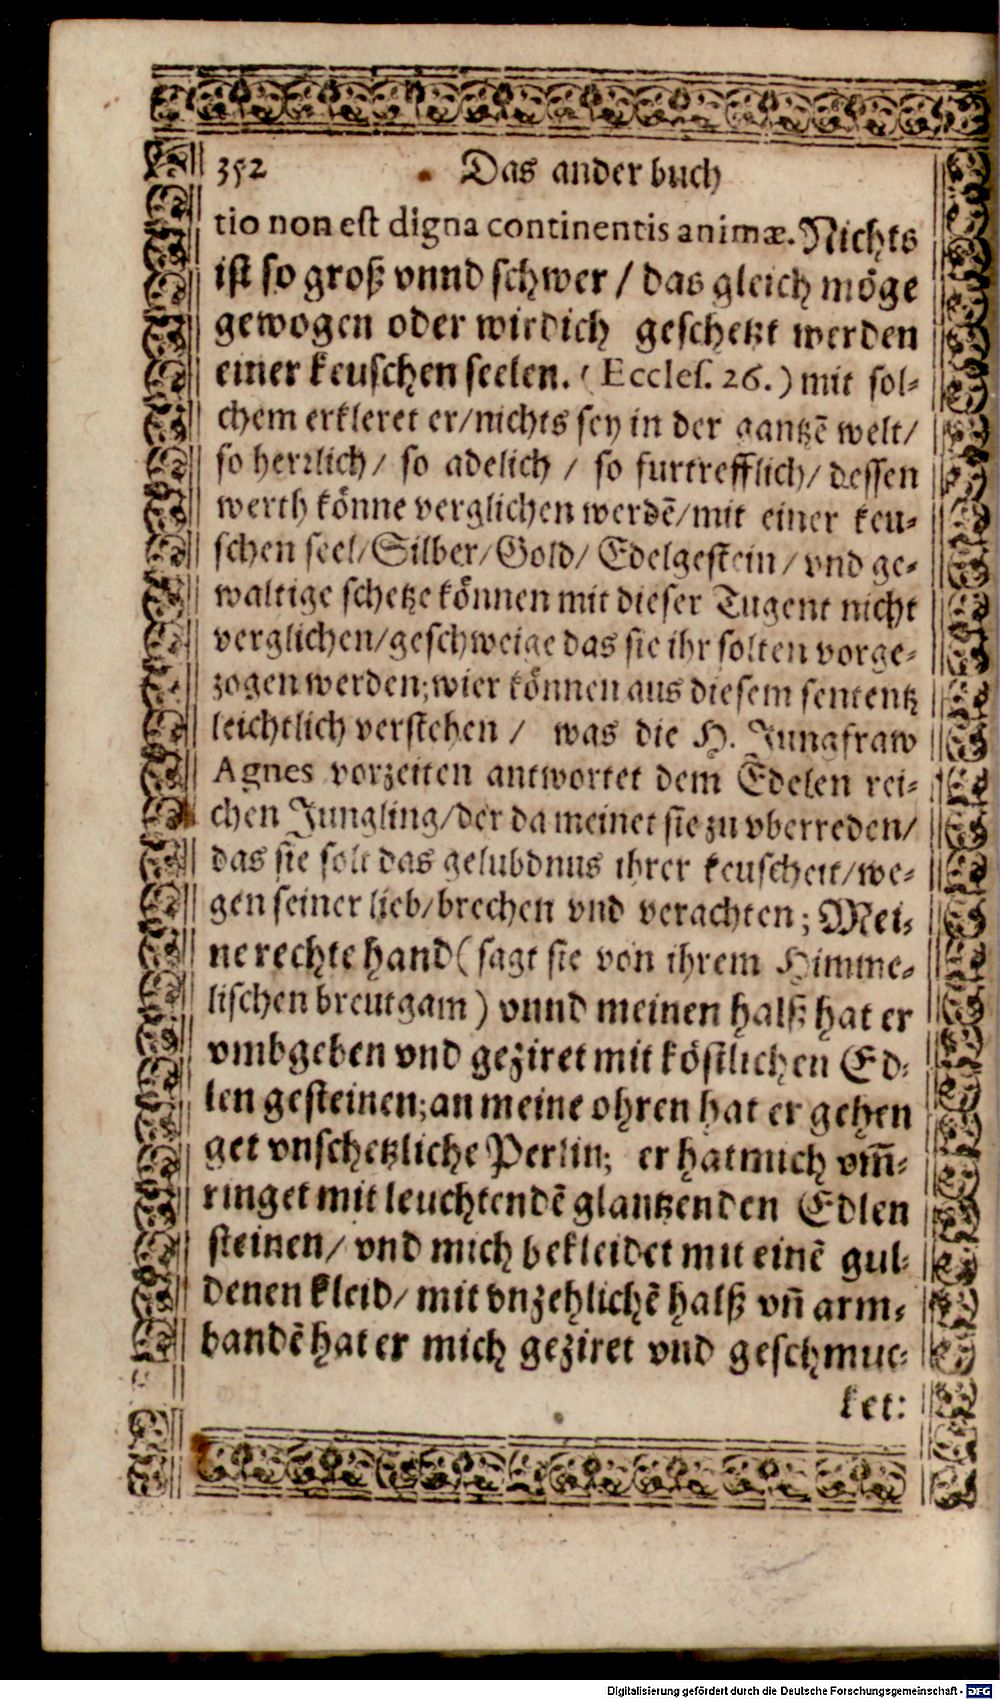 352 Das ander buch
tio non est digna continentis animæ. Nichts
ist so groß vnnd schwer / das gleich möge
gewogen oder wirdich geschetzt werden
einer keuschen seelen. (Eccles. 26.) mit sol-
chem erkleret er/nichts sey in der gantzē welt/
so herrlich/ so adelich / so furtrefflich/ dessen
werth könne verglichen werdē/mit einer keu-
schen seel/Silber/Gold/ Edelgestein / vnd ge-
waltige schetze können mit dieser Tugent nicht
verglichen/geschweige das sie ihr solten vorge-
zogen werden; wier können aus diesem sententz
leichtlich verstehen / was die H. Jungfraw
Agnes vorzeiten antwortet dem Edelen rei-
chen Jungling/der da meinet sie zu vberreden/
das sie solt das gelubdnus ihrer keuscheit/we-
gen seiner lieb/brechen vnd verachten; Mei-
ne rechte hand (sagt sie von ihrem Himme-
lischen breutgam) vnnd meinen halß hat er
vmbgeben vnd geziret mit köstlichen Ed-
len gesteinen; an meine ohren hat er gehen
get vnschetzliche Perlin; er hat mich vm̄-
ringet mit leuchtendē glantzenden Edlen
steinen/ vnd mich bekleidet mit einē gul-
denen kleid/ mit vnzehlichē halß vn̄ arm-
bandē hat er mich geziret vnd geschmuc-
ket:
Digitalisierung gefördert durch die Deutsche Forschungsgemeinschaft - DFG